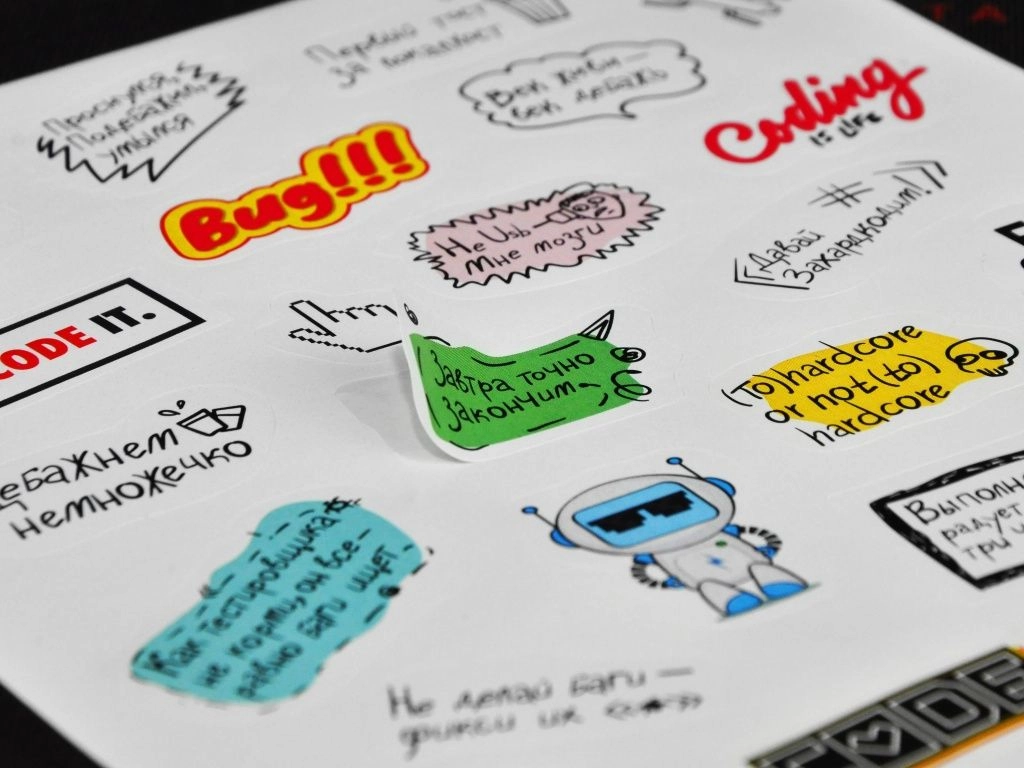 Первый тест
за
Проснулся,
Подебажил,
умылся
Век живи —
век дебажь
Coding
IS LIFE
Bug!!!
Не Usb —
Мне мозги
#
«Давай
Захардкодим!»
CODE IT.
Завтра точно
Закончим
(то)hardcore
or not (to)
hardcore
дебажнем
немножечко
Выполн
радует
три ч
Как тестировщика
не корми, он все
равно баги ищет
Не делай баги —
фикси их